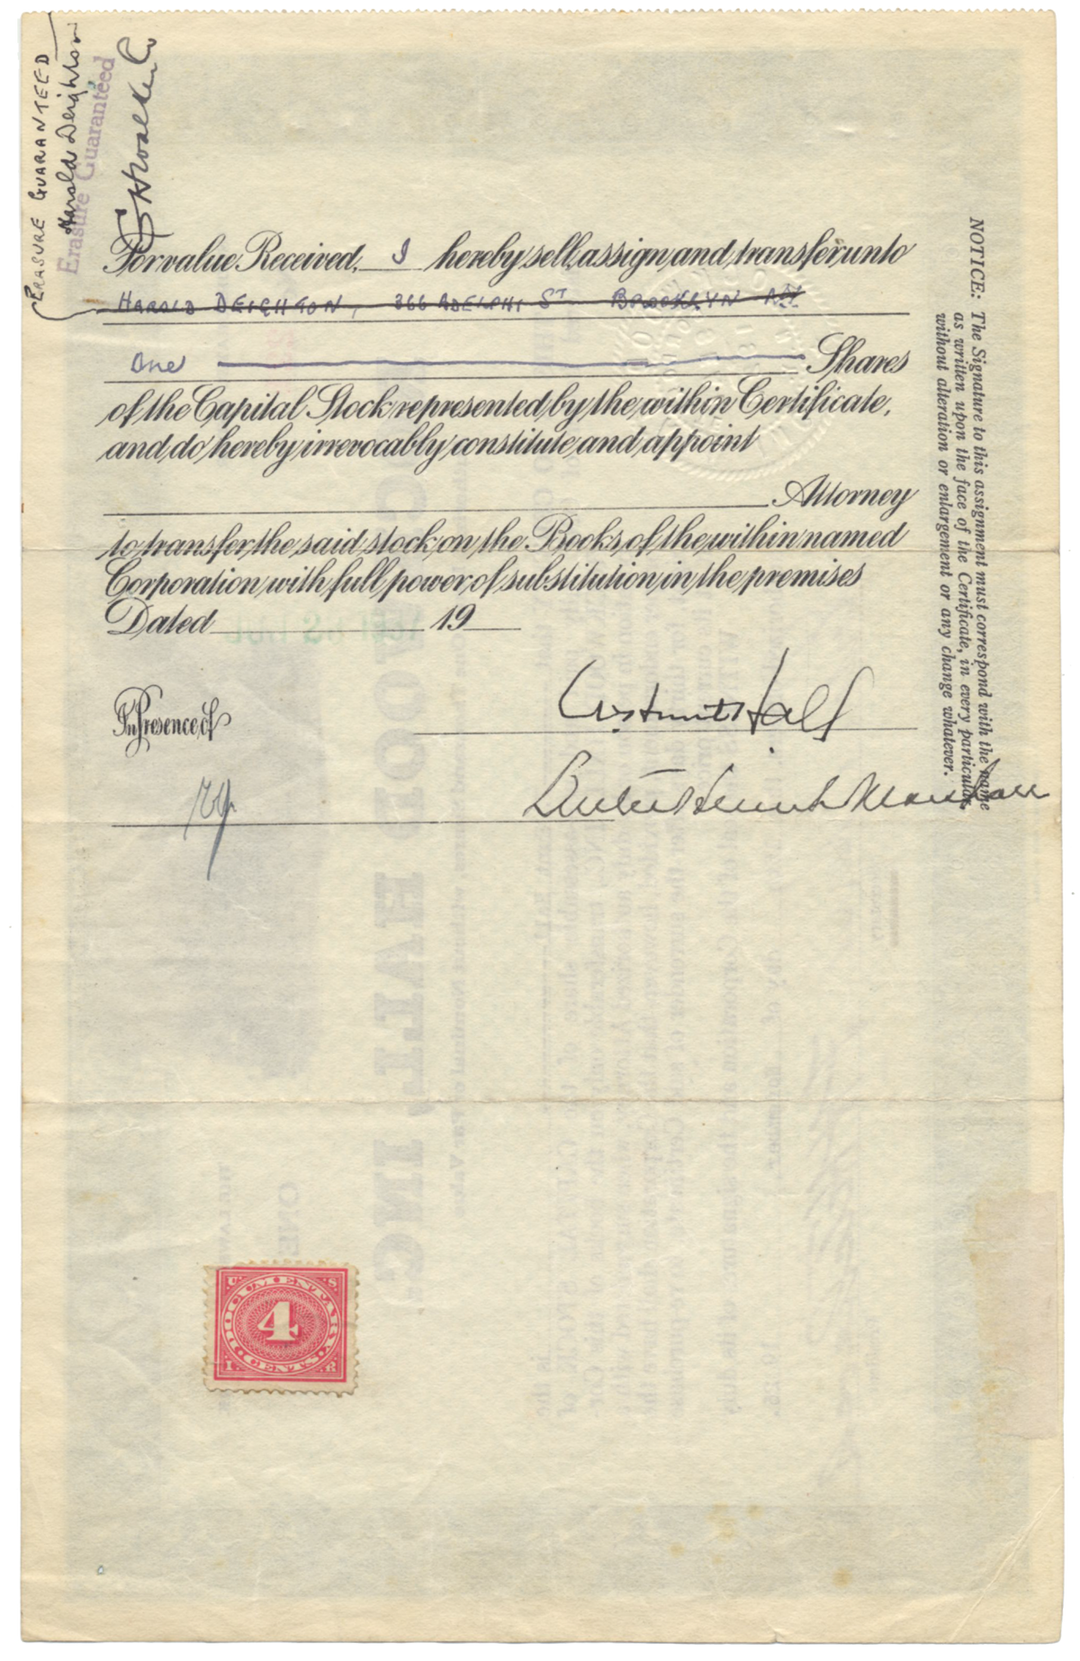 ERASURE GUARANTEED
Harold Deighton
Erasure Guaranteed
For value Received, I hereby sell, assign and transfer unto
HAROLD DEIGHTON, 366 ADELPHI ST BROOKLYN NY
One Shares
of the Capital Stock represented by the within Certificate,
and do hereby irrevocably constitute and appoint
Attorney
to transfer the said stock on the Books of the within named
Corporation with full power of substitution in the premises
Dated 19
In Presence of
NOTICE: The Signature to this assignment must correspond with the name
as written upon the face of the Certificate, in every particular,
without alteration or enlargement or any change whatever.
U. S.
DOCUMENTARY
4
CENTS
I. R.